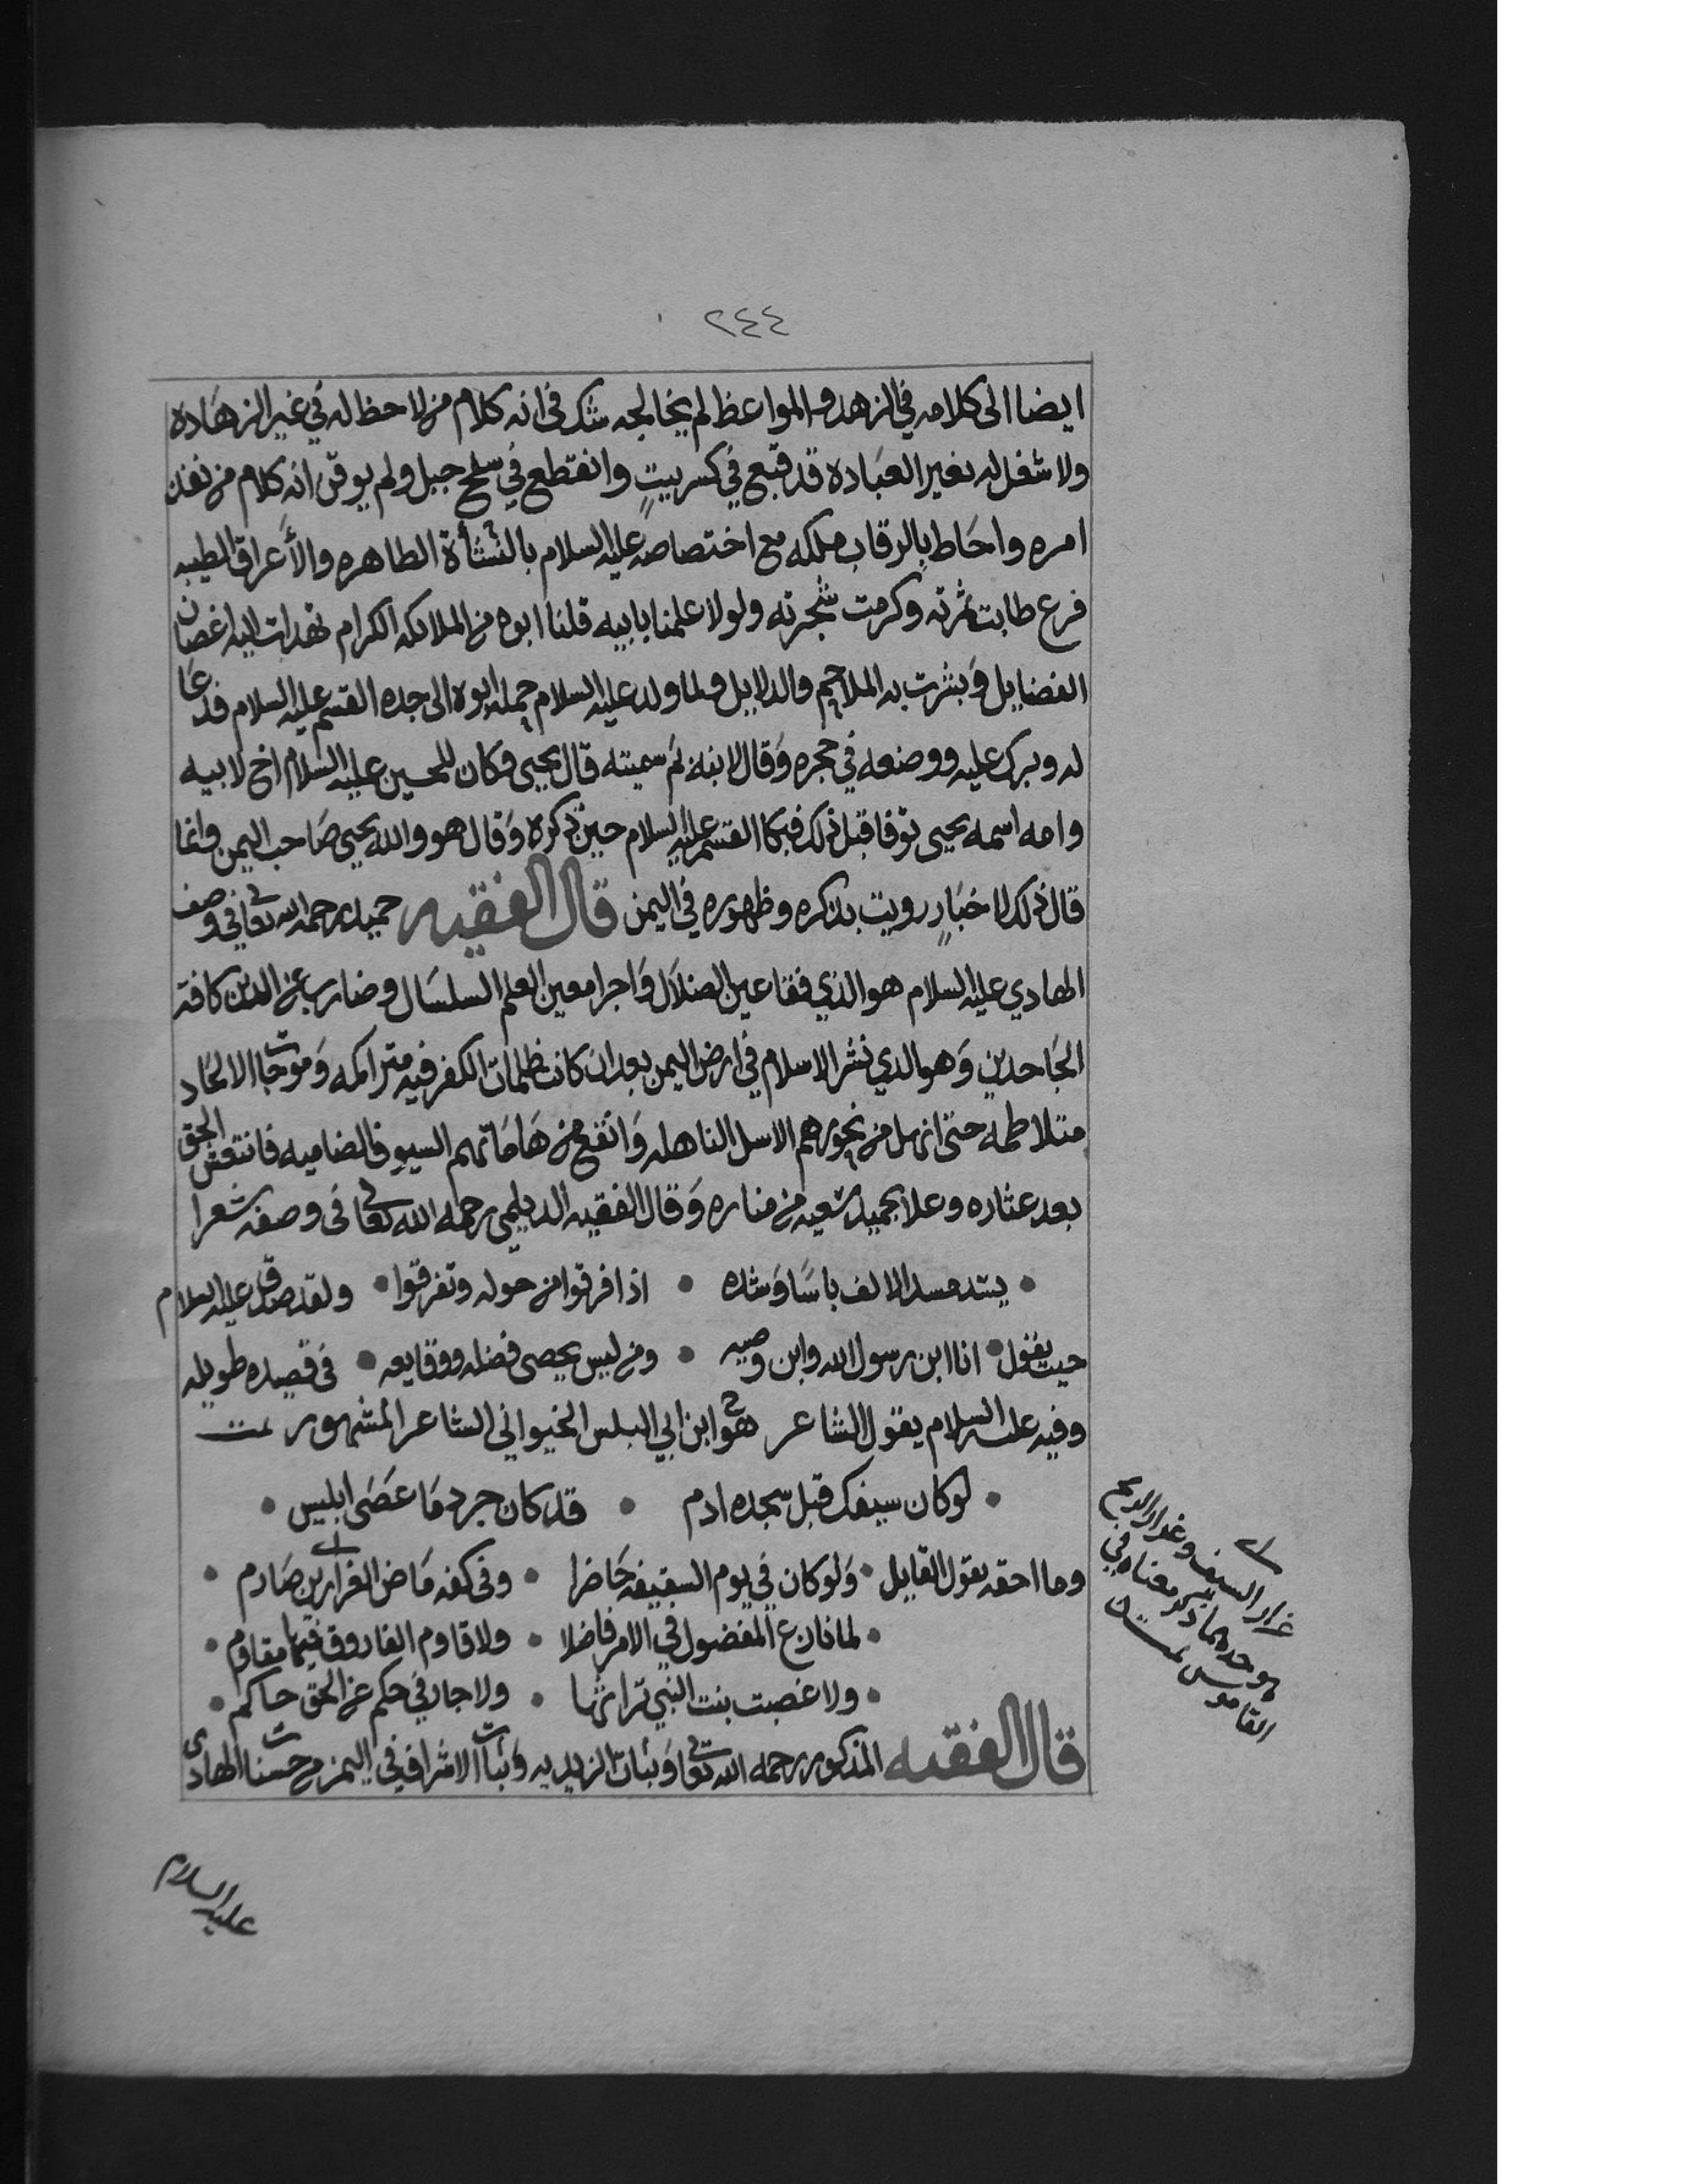 ٢٤٤
ايضا الى كلامه في الزهد والمواعظ لم يخالجه شك في انه كلام من لا حظ له في غير الزهاده
ولا شغل له بغير العباده قد قبع في كسر بيتٍ وانقطع في سفح جبل ولم يوقن انه كلام من نفذ
امره واحاط بالرقاب ملكه مع اختصاصه عليه السلام بالنشأة الطاهره والأعراق الطيبه
فرع طابت ثمرته وكرمت شجرته ولولا علمنا بابيه قلنا ابوه من الملايكه الكرام تهدلت اليه اغصان
الفضايل وبشرت به الملاحم والدلايل ولما ولد عليه السلام حمله ابوه الى جده القسم عليه السلام فدعا
له وبرك عليه ووضعه في حجره وقال لابنه بم سميته قال يحيى وكان للحسين عليه السلام اخ لابيه
وامه اسمه يحيى توفا قبل ذلك فبكا القسم عليه السلام حين ذكره وقال هو والله يحيى صاحب اليمن وانما
قال ذلك لاخبارٍ رويت بذكره وظهوره في اليمن قال الفقيه حميد رحمه الله تعالى في وصف
الهادي عليه السلام هو الذي فقا عين الضلال واجرا معين العلم السلسال وضارب عن الدين كافة
الجاحدين وهو الذي نشر الاسلام في ارض اليمن بعد ان كانت ظلمات الكفر فيه متراكمه وموجات الالحاد
متلاطمه حتى انهل من نحورهم الاسل الناهله وانقع من هاماتهم السيوف الضاميه فانتعش الحق
بعد عثاره وعلا بحميد سعيه من مناره وقال الفقيه الديلمي رحمه الله تعالى في وصفه شعرا
يسد مسد الالف باسا وشده • اذا افرقوا من حوله وتفرقوا • ولقد صدق عليه السلام
حيث يقول • انا ابن رسول الله وابن وصيه • ومن ليس يحصى فضله ووقايعه • في قصيده طويله
وفيه عليه السلام يقول الشاعر هو ابن ابي البلس الخيواني الشاعر المشهور تمت
• لوكان سيفك قبل سجده ادم • قد كان جرد ما عصى ابليس •
وما احقه بقول القايل • ولو كان في يوم السقيفه حاضرا • وفي كفه ماض الغرارين صارم •
• لما نازع المفضول في الامر فاضلا • ولا قاوم الفاروق فيها مقاوم •
• ولا غصبت بنت النبي تراثها • ولا جار في حكم عن الحق حاكم •
قال الفقيه المذكور رحمه الله تعالى وثبات الزيديه وثبات الاشراف في اليمن من حسنات الهادي
عليه السلام
غرار السيف وغرار الرمح
هو حدهما ذكر معناه في
القاموس تمت